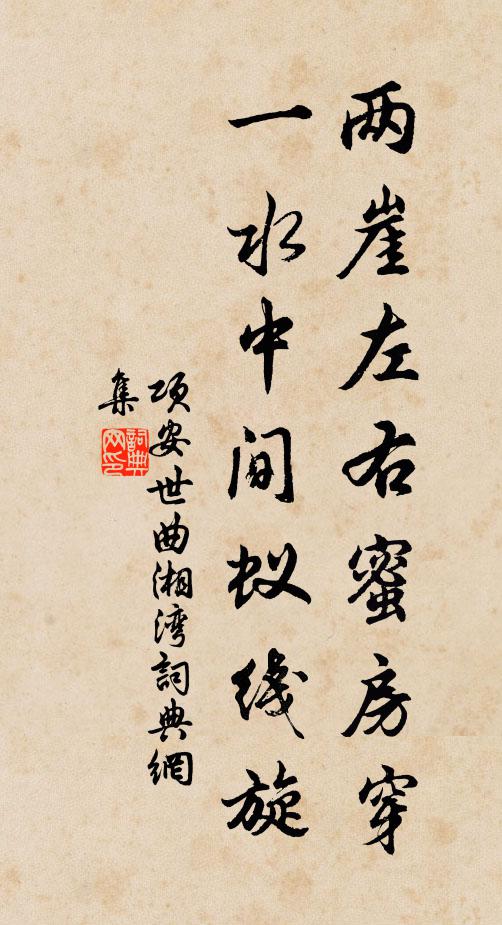 两崖左右蜜房穿
一水中间蚁线旋
项安世曲湘湾詞典網
集
詞典
网印